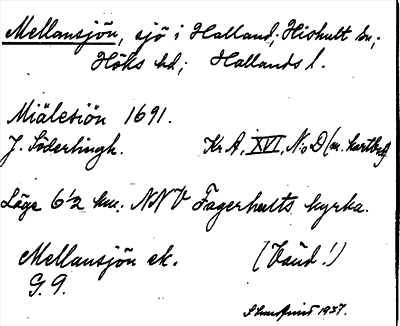 Mellansjön, sjö i Halland; Hishult sn;
Höks hd; Hallands l.
Miälesiön 1691.
J. Söderlingh. Kr. A. XVI, No D (m. kartbl.)
Läge 6 ½ km. NNV Fagerhults kyrka.
Mellansjön ek. (Vänd!)
G. 9.
1937.